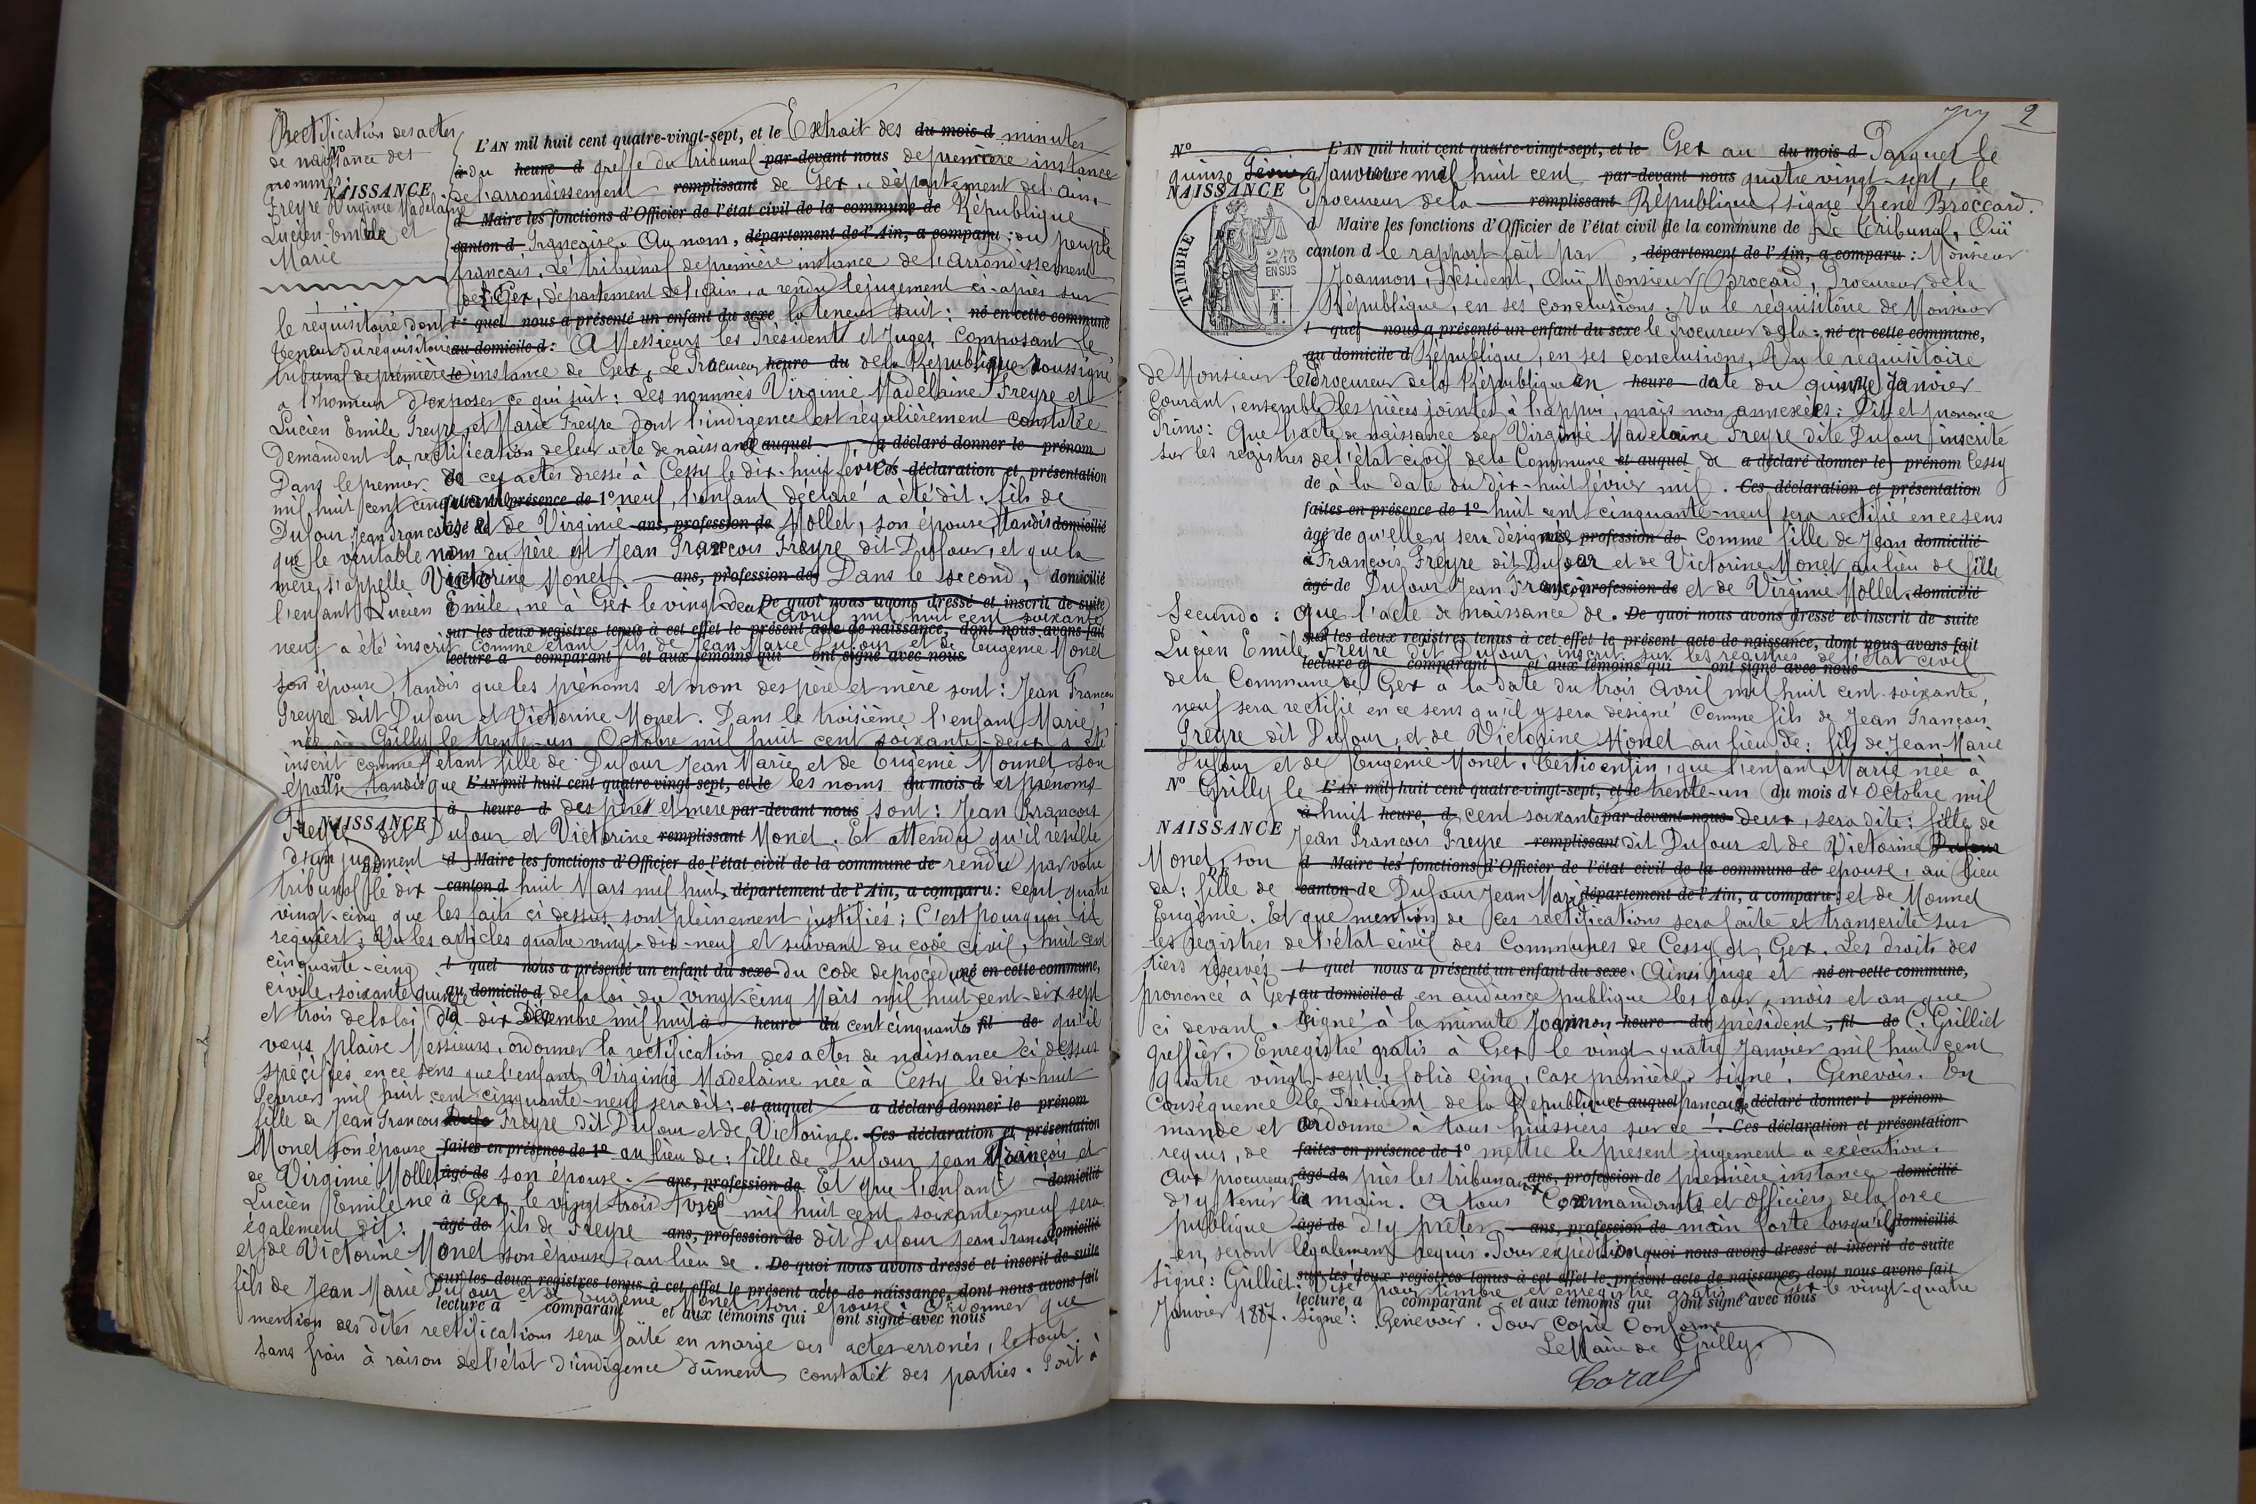 Rectification des actes
de naissance des
nommés:
Freyre Virginie Madelaine
Lucien Emile et
Marie
No
NAISSANCE
DE
L'AN mil huit cent quatre-vingt-sept, et le Extrait des du mois d minutes
à du heure d greffe du tribunal par-devant nous de première instance
de l'arrondissement remplissant de Gex, département de l'Ain.
d Maire les fonctions d'Officier de l'état civil de la commune de République
canton d française. Au nom, département de l'Ain, a comparu : du peuple
français. Le tribunal de première instance de l'arrondissement
de Gex, département de l'Ain, a rendu le jugement ci-après sur
le réquisitoire dont l quel nous a présenté un enfant du sexe la teneur suit: né en cette commune
teneur du réquisitoire au domicile d : A Messieurs les Présidents et Juges composant le
tribunal de première le instance de Gex, Le Procureur heure du de la République soussigné
a l'honneur d'exposer ce qui suit: Les nommés Virginie Madelaine Freyre et
Lucien Emile Freyre et Marie Freyre dont l'indigence est régulièrement constatée
Demandent la rectification de leur acte de naissance et auquel a déclaré donner le prénom
Dans le premier de ces actes dressé à Cessy le dix-huit février Ces déclaration et présentation
mil huit cent cinquante faites en présence de 1o neuf, l'enfant déclaré a été dit: fils de
Dufour Jean François âgé de et de Virginie ans, profession de Mollet, son épouse, tandis domicilié
que le véritable nom du père est Jean François Freyre dit Dufour, et que la
mère s'appelle Victorine Monet. ans, profession de Dans le second, domicilié
l'enfant Lucien Emile, né à Gex le vingt-deux De quoi nous avons dressé et inscrit de suite
avril mil huit cent soixante
sur les deux registres tenus à cet effet le présent acte de naissance, dont nous avons fait
neuf a été inscrit comme étant fils de Jean Marie Dufour et de Eugénie Monet
lecture a comparant et aux témoins qui ont signé avec nous
son épouse, tandis que les prénoms et nom des père et mère sont: Jean François
Freyre ditt Dufour et Victorine Monet. Dans le troisième l'enfant Marie,
née à Grilly le trente-un Octobre mil huit cent soixante-deux a été
inscrit comme étant fille de Dufour Jean Marie et de Eugénie Monnet son
No
épouse tandis que L'AN mil huit cent quatre-vingt-sept, et le les noms du mois d et prénoms
à heure d des père et mère par-devant nous sont: Jean François
NAISSANCE
Freyre dit Dufour et Victorine remplissant Monet. Et attendu qu'il résulte
DE
d'un jugement d Maire les fonctions d'Officier de l'état civil de la commune de rendu par votre
tribunal le dix canton d huit Mars mil huit, département de l'Ain, a comparu : cent quatre
vingt-cinq que les faits ci dessus sont pleinement justifiés; C'est pourquoi il
requiert; Vu les articles quatre vingt-dix-neuf et suivant du code civil, huit cent
cinquante-cinq l quel nous a présenté un enfant du sexe du code de procédure né en cette commune,
civile, soixante quinze au domicile d de la loi du vingt-cinq Mars mil huit cent-dix sept
et trois de la loi du dix Décembre mil huit à heure du cent cinquante fil de qu'il
vous plaise Messieurs, ordonner la rectification des actes de naissance ci dessus
spécifiés en ce sens que l'enfant Virginie Madelaine née à Cessy le dix-huit
Février mil huit cent cinquante-neuf sera dit: et auquel a déclaré donner le prénom
fille de Jean François Freyre dit Dufour et de Victorine. Ces déclaration et présentation
Monet son épouse faites en présence de 1o au lieu de: fille de Dufour Jean François et
de Virginie Mollet âgé de son épouse. ans, profession de Et que l'enfant domicilié
Lucien Emile né à Gex le vingt-trois Avril mil huit cent soixante-neuf sera
également dit: âgé de fils de Freyre ans, profession de dit Dufour Jean François domicilié
et de Victorine Monet son épouse, au lieu de. De quoi nous avons dressé et inscrit de suite
sur les deux registres tenus à cet effet le présent acte de naissance, dont nous avons fait
fils de Jean Marie Dufour et de Eugénie Monet son épouse. Ordonner que
lecture a comparant et aux témoins qui ont signé avec nous
mention des dites rectifications sera faite en marge des actes erronés, le tout
sans frais à raison de l'état d'indigence dûment constatét des parties. Fait à
2
No
L'AN mil huit cent quatre-vingt-sept, et le Gex au du mois d Parquet le
quinze Février à Janvier heure mil huit cent par-devant nous quatre vingt-sept, le
NAISSANCE
Procureur de la remplissant République, signé René Broccard.
TIMBRE
DE
2/10
EN SUS
F.
d Maire les fonctions d'Officier de l'état civil de la commune de Le Tribunal, Ouï
canton d le rapport fait par , département de l'Ain, a comparu : Monsieur
Joannon, Président, Ouï Monsieur Brocard, Procureur de la
République, en ses conclusions. Vu le réquisitoire de Monsieur
l quel nous a présenté un enfant du sexe le Procureur de la : né en cette commune,
au domicile d République, en ses conclusions, Vu le réquisitoire
de Monsieur le Procureur de la République en heure date du quinze Janvier
courant, ensemble les pièces jointes à l'appui, mais non annexées: Dit et prononce
Primo: Que l'acte de naissance de Virginie Madelaine Freyre dite Dufour inscrite
sur les registres de l'état civil de la Commune et auquel de a déclaré donner le prénom Cessy
de à la date du dix-huit février mil . Ces déclaration et présentation
faites en présence de 1o huit cent cinquante-neuf sera rectifié en ce sens
âgé de qu'elle y sera désignée profession de comme fille de Jean domicilié
à François Freyre dit Dufour et de Victorine Monet au lieu de fille
âgé de Dufour Jean François profession de et de Virginie Mollet. domicilié
Secundo: Que l'acte de naissance de. De quoi nous avons dressé et inscrit de suite
sur les deux registres tenus à cet effet le présent acte de naissance, dont nous avons fait
Lucien Emile Freyre dit Dufour inscrit sur les registres de l'état civil
lecture a comparant et aux témoins qui ont signé avec nous
de la Commune de Gex à la date du trois Avril mil huit cent soixante,
neuf sera rectifié en ce sens qu'il y sera désigné comme fils de Jean François
Freyre dit Dufour, et de Victorine Monet au lieu de: fils de Jean-Marie
Dufour et de Eugénie Monet. Tertio enfin, que l'enfant Marie née à
No Grilly le L'AN mil huit cent quatre-vingt-sept, et le trente-un du mois d Octobre mil
à huit heure d cent soixante par-devant nous deux, sera dite: fille de
NAISSANCE
Jean François Freyre remplissant dit Dufour et de Victorine
Monet, son d Maire les fonctions d'Officier de l'état civil de la commune de épouse, au lieu
DE
de: fille de canton de Dufour Jean Marie département de l'Ain, a comparu : et de Monnet
Eugénie. Et que mention de ces rectifications sera faite et transcrite sur
les registres de l'état civil des Communes de Cessy et Gex. Les droits des
tiers réservés l quel nous a présenté un enfant du sexe. Ainsi jugé et né en cette commune,
prononcé à Gex au domicile d en audience publique les jour, mois et an que
ci devant. Signé à la minute Joannon heure du président, fil de C. Grilliet
greffier. Enregistré gratis à Gex le vingt-quatre Janvier mil huit cent
quatre vingt-sept, folio cinq, case première. Signé: Genevois. En
Conséquence le Président de la République et auquel française déclaré donner l prénom
mande et ordonne à tous huissiers sur ce . Ces déclaration et présentation
requis, de faites en présence de 1o mettre le présent jugement à exécution.
Aux procureurs âgé de près les tribunaux ans, profession de première instance domicilié
d'y tenir la main. A tous Commandants et officiers de la force
publique âgé de d'y prêter ans, profession de main forte lorsqu'ils domicilié
en seront légalement requis. Pour expédition De quoi nous avons dressé et inscrit de suite
sur les deux registres tenus à cet effet le présent acte de naissance, dont nous avons fait
Signé: Grilliet. Visé pour timbre et enregistré gratis à Gex le vingt-quatre
lecture a comparant et aux témoins qui ont signé avec nous
Janvier 1887. Signé: Genevois. Pour Copie Conforme
Le Maire de Grilly.